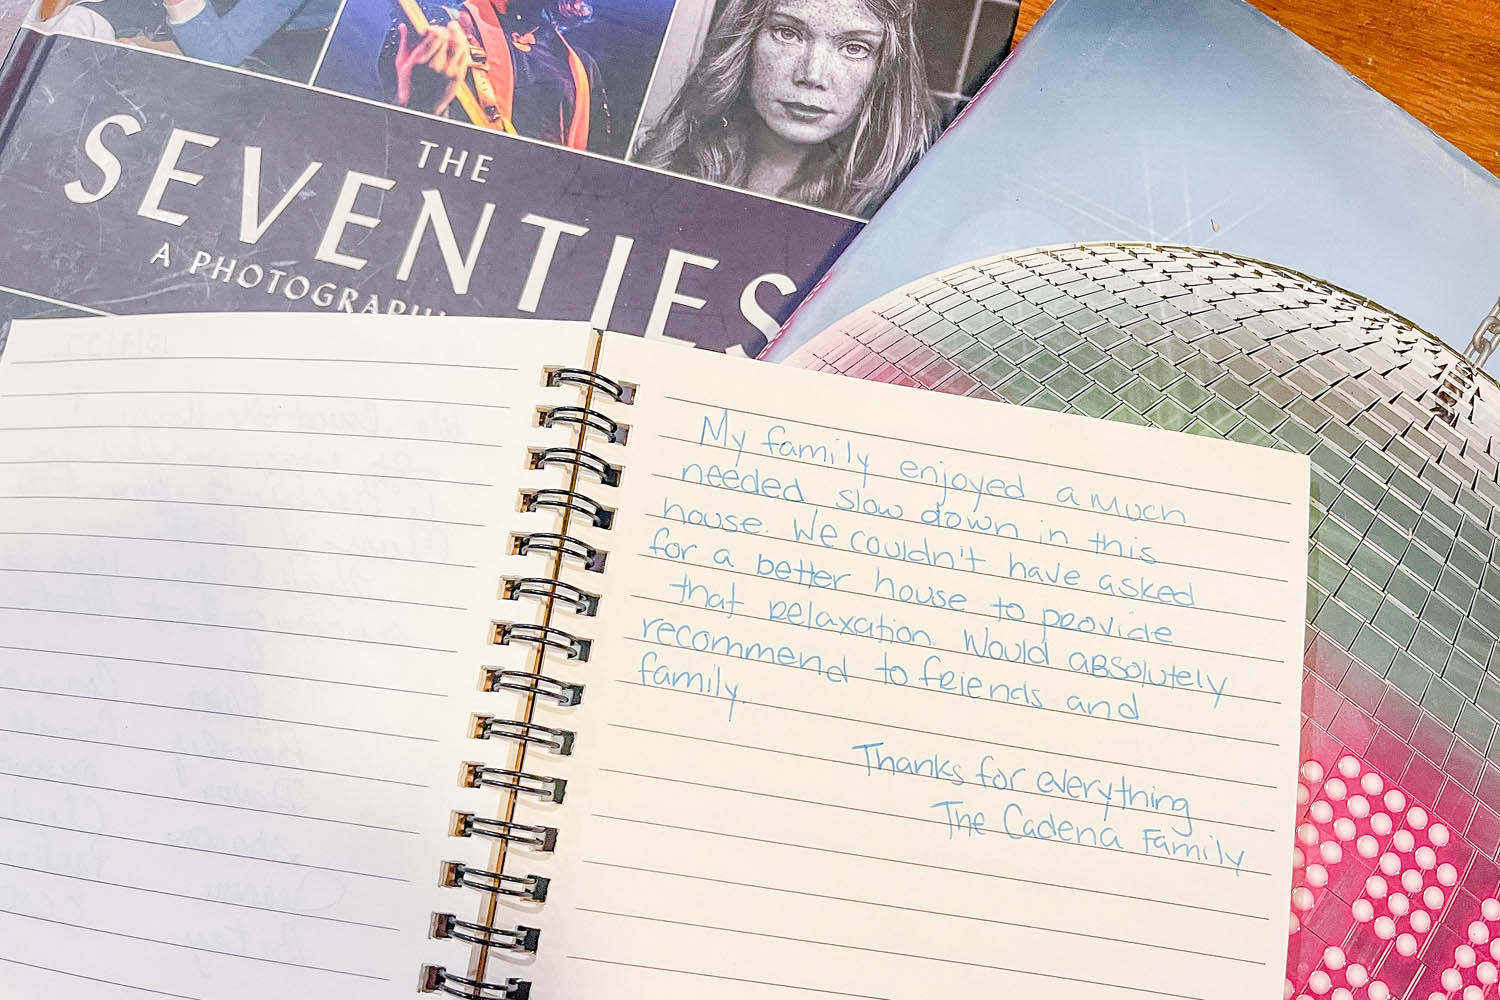 THE
SEVENTIES
A PHOTOGRAPHI
My family enjoyed a much
needed slow down in this
house. We couldn't have asked
for a better house to provide
that relaxation. Would absolutely
recommend to friends and
family.
Thanks for everything
The Cadena Family